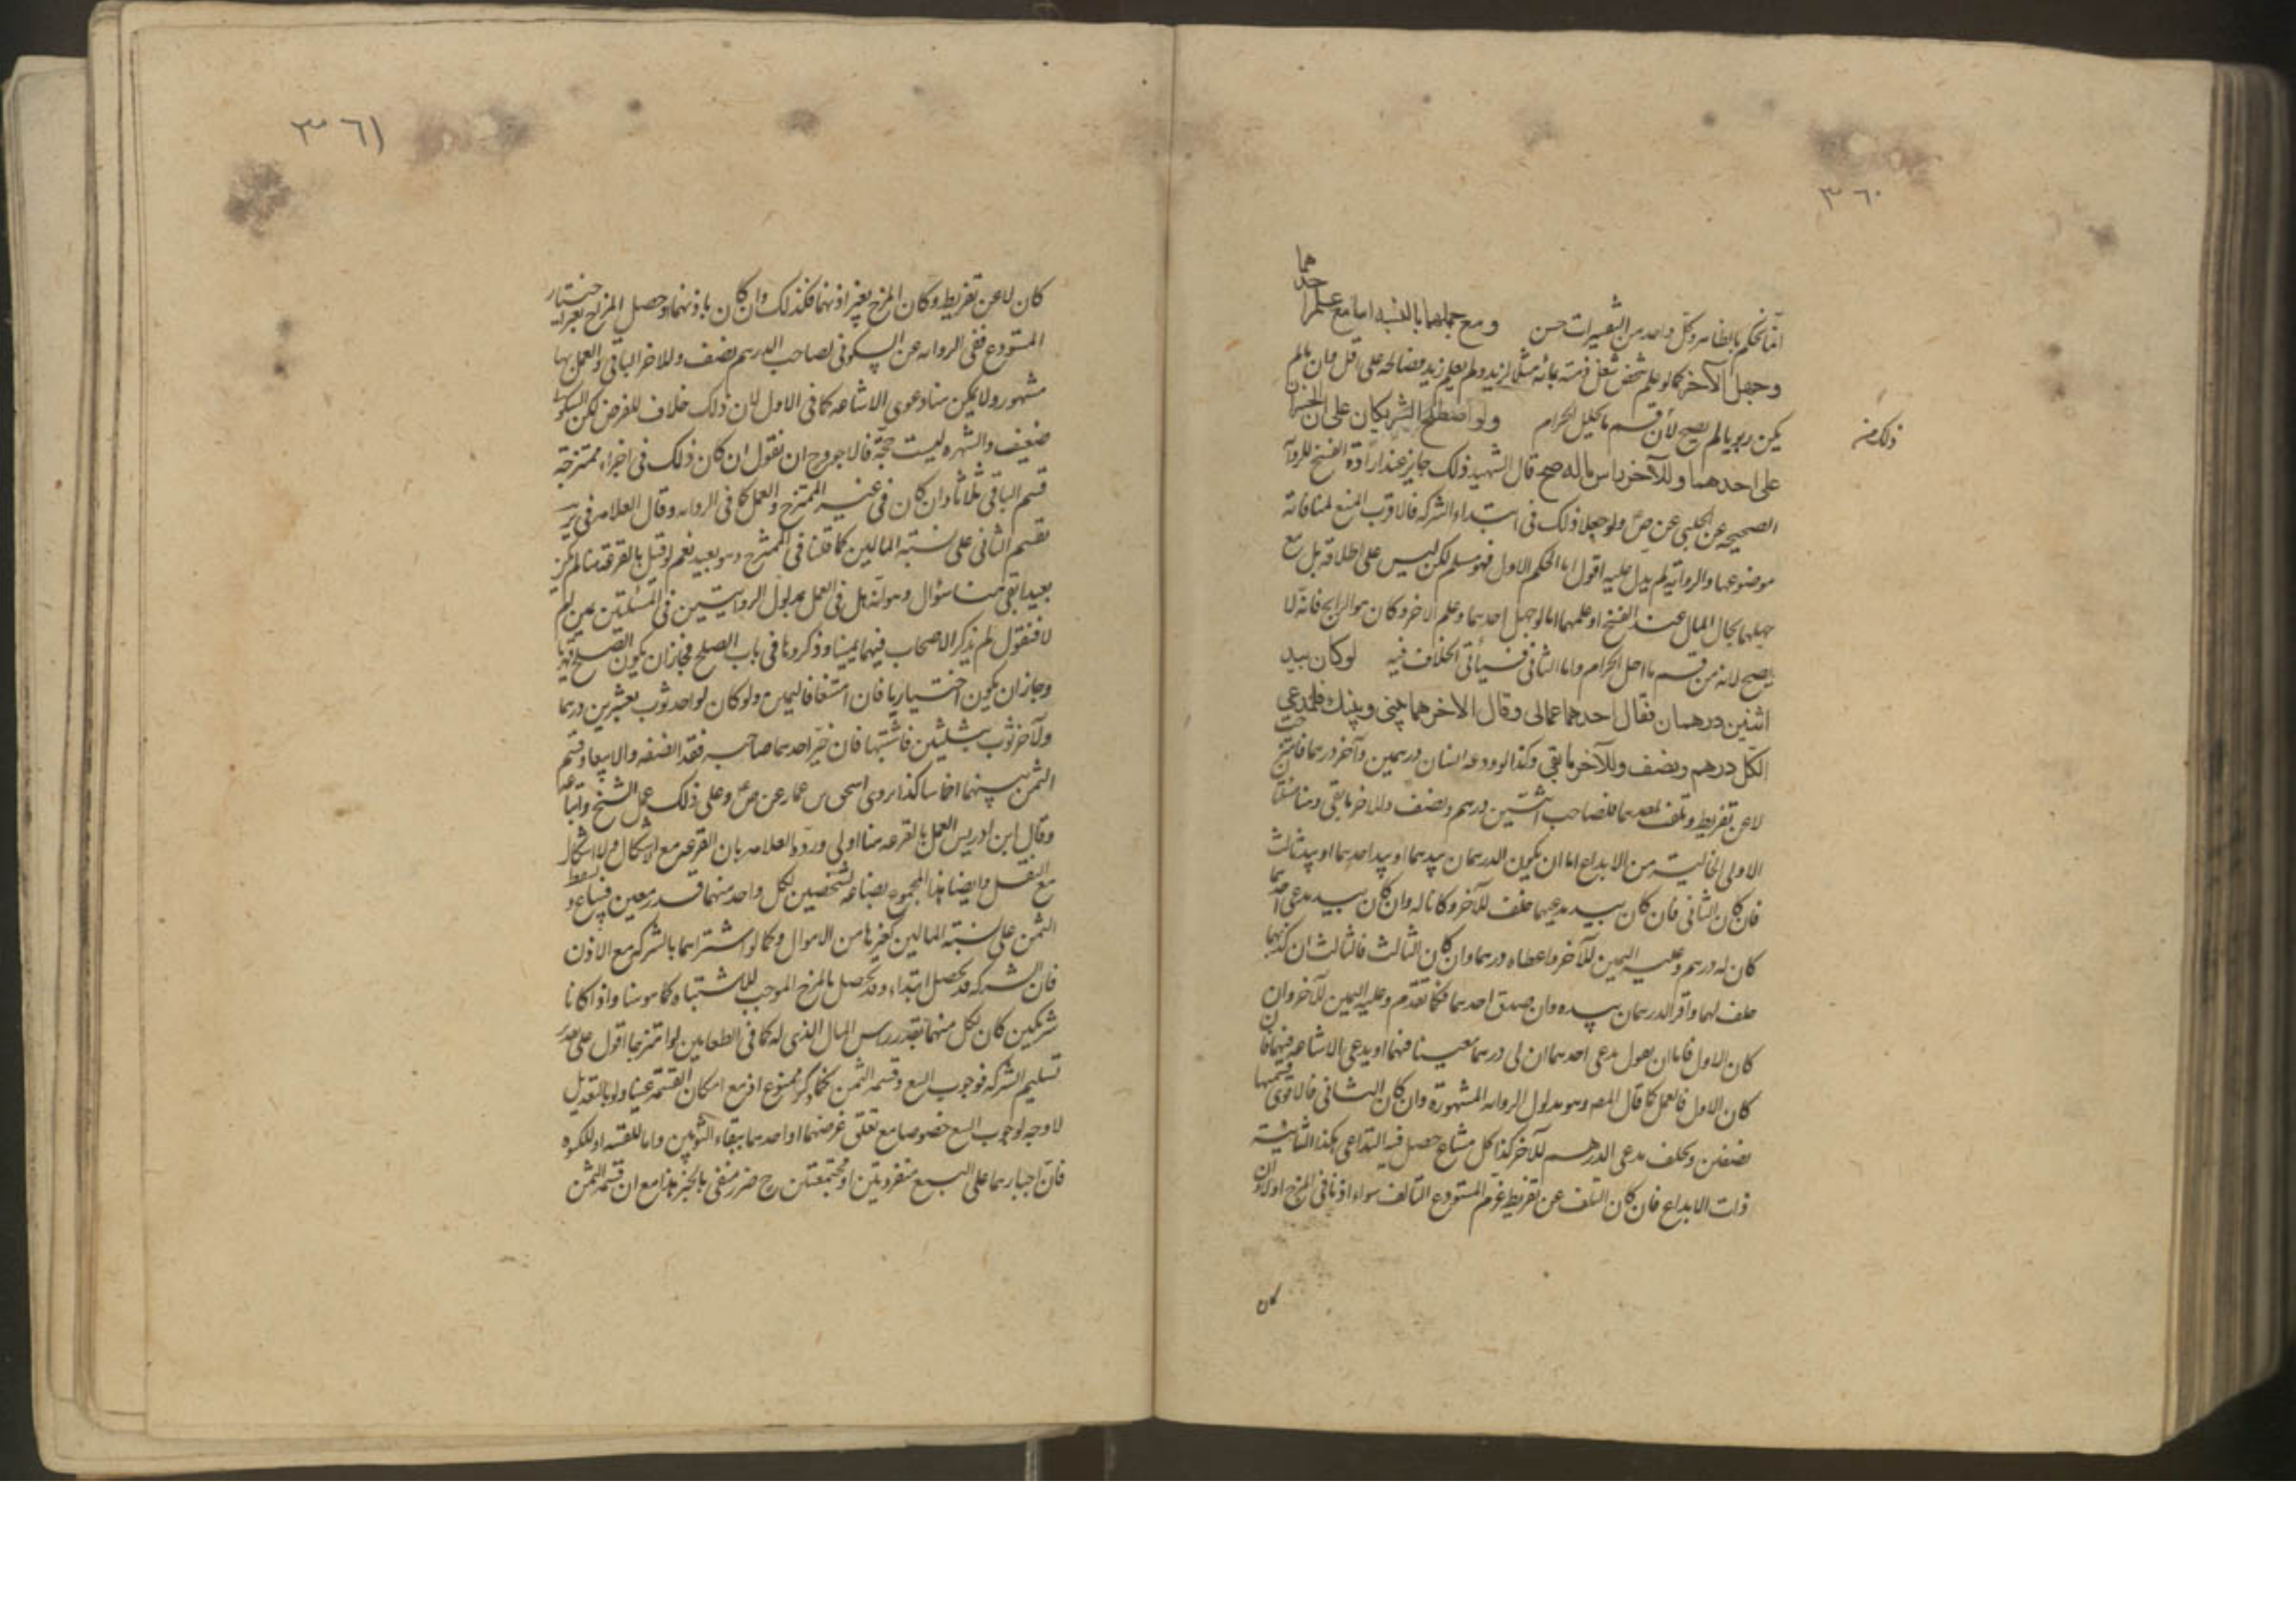 ٣٦٠
انما نحكم بالظاهر وكل واحد من التعبيرات حسن ومع جهلهما بالنسبة اما مع علم احدهما
وجهل الآخر كما لو علم شخص شغل ذمته بمائة مثلا لزيد ولم يعلم زيد فصالحه على اقل فان لم
يكن ربويا لم يصح لأن قسم ما يحليل الحرام ولو اصطلح الشريكان على ان الخسران
ذلك من
على احدهما وللآخر راس ماله صح قال الشهيد ذلك جايز عند ارادة الفسخ للرواية
الصحيحة عن الحلبي عن ص ولو جعلا ذلك في ابتداء الشركة فالاقرب المنع لمنافاته
موضوعها والرواية لم يدل عليه اقول اما الحكم الاول فهو مسلم لكن ليس على اطلاقه بل مع
جهلهما بحال المال عند الفسخ او علمهما اما لو جهل احدهما وعلم الآخر وكان هو الرابح فانه لا
يصح لانه من قسم ما احل الحرام واما الثاني فسيأتي الخلاف فيه لو كان بيد
اثنين درهمان فقال احدهما هما لي وقال الاخر هما بيني وبينك فلمدعي
الكل درهم ونصف وللآخر ما بقي وكذا لو ودعه انسان درهمين وآخر درهما فامتزجت
لا عن تفريط وتلف احدهما فلصاحب اثنين درهم ونصف وللآخر ما بقي وهنا مسئلتا
الاولى الخالية من الايداع اما ان يكون الدرهمان بيدهما او بيد احدهما او بيد ثالث
فان كان الثاني فان كان بيد مدعيهما حلف للآخر وكانا له وان كان بيد مدعي احدهما
كان له درهم وعليه اليمين للآخر واعطاه درهما وان كان الثالث فالثالث ان كذبهما
حلف لهما واقر الدرهمان بيده وان صدق احدهما فكما تقدم وعليه اليمين للآخر وان
كان الاول فاما ان يقول مدعي احدهما ان لي درهما معينا فيهما او يدعي الاشاعة فيهما فان
كان الاول فالعمل كما قال المصـ وهو مدلول الرواية المشهورة وان كان الثاني فالاقوى قسمتها
نصفين ويحلف مدعي الدرهم للآخر كذا كل مشاع حصل فيه التداعي هكذا الثانية
ذات الايداع فان كان التلف عن تفريط غرم المستودع التالف سواء اذنا في المزج او لا وان
كان
٣٦١
كان لا عن تفريط وكان المزج بغير اذنهما فكذلك وان كان باذنهما وحصل المزج بغير اختيار
المستودع ففي الرواية عن السكوني لصاحب الدرهم نصف وللاخر الباقي والعمل بها
مشهور ولا يمكن هنا دعوى الاشاعة كما في الاول لان ذلك خلاف للفرض لكن السكوني
ضعيف والشهرة ليست حجة فالاجود ح ان نقول ان كان ذلك في اجزاء ممتزجة
قسم الباقي ثلاثا وان كان في غير الممتزج والعمل كما في الرواية وقال العلامة في ير
تقسيم الثاني على نسبة المالين كما قلنا في الممتزج وهو بعيد نعم لو قيل بالقرعة هنا لم يكن
بعيدا بقي هنا سؤال وهو انه هل في العمل بمدلول الروايتين في المسئلتين يمين ام
لا فنقول لم يذكر الاصحاب فيهما يمينا وذكروها في باب الصلح فجاز ان يكون الصلح قهريا
وجاز ان يكون اختياريا فان امتنعا فاليمين ولو كان لواحد ثوب بعشرين درهما
ولآخر ثوب بثلثين فاشتبها فان خير احدهما صاحبه فقد انصفه والا بيعا وقسم
الثمن بينهما اخماسا كذا روى اسحق بن عمار عن ص وعلى ذلك عمل الشيخ واتباعه
وقال ابن ادريس العمل بالقرعة هنا اولى ورده العلامة بان القرعة مع الاشكال ولا اشكال
مع النقل وايضا هذا المجموع بضاعة لشخصين لكل واحد منهما قدر معين فيباع ويبسط
الثمن على نسبة المالين كغيرها من الاموال وكما لو اشتراهما بالشركة مع الاذن
فان الشركة قد يحصل ابتداء وقد يحصل بالمزج الموجب للاشتباه كما هو هنا واذا كانا
شريكين كان لكل منهما بقدر راس المال الذي له كما في الطعامين لو امتزجا اقول على تقدير
تسليم الشركة فوجوب البيع وقسمة الثمن كما ذكر ممنوع اذ مع امكان القسمة عينا ولو بالتعديل
لا وجه لوجوب البيع خصوصا مع تعلق غرضهما او احدهما ببقاء الثوبين واما للقنية او للكسوة
فان اجبارهما على البيع منفردتين او مجتمعتين ح ضرر منفي بالخبر هذا مع ان قسمة الثمن